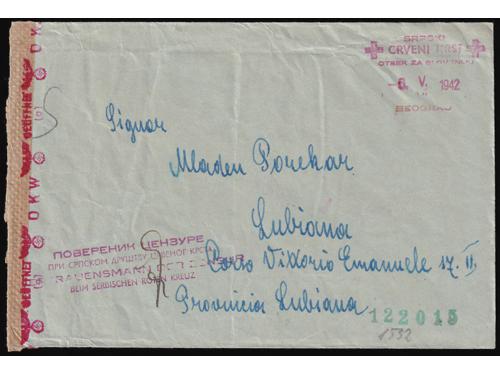 SRPSKI
CRVENI KRST
OTSEK ZA SLOVENIJU
-6. V. 1942
BEOGRAD
Signor
Mladen Porekar
Lubiana
Corso Vittorio Emanuele št. II.
Provincia Lubiana
ПОВЕРЕНИК ЦЕНЗУРЕ
ПРИ СРПСКОМ ДРУШТВУ ЦРВЕНОГ КРСТА
DER ZENSUR
BEIM SERBISCHEN ROTEN KREUZ
122015
1532
OKW
Geöffnet
OKW
Geöffnet